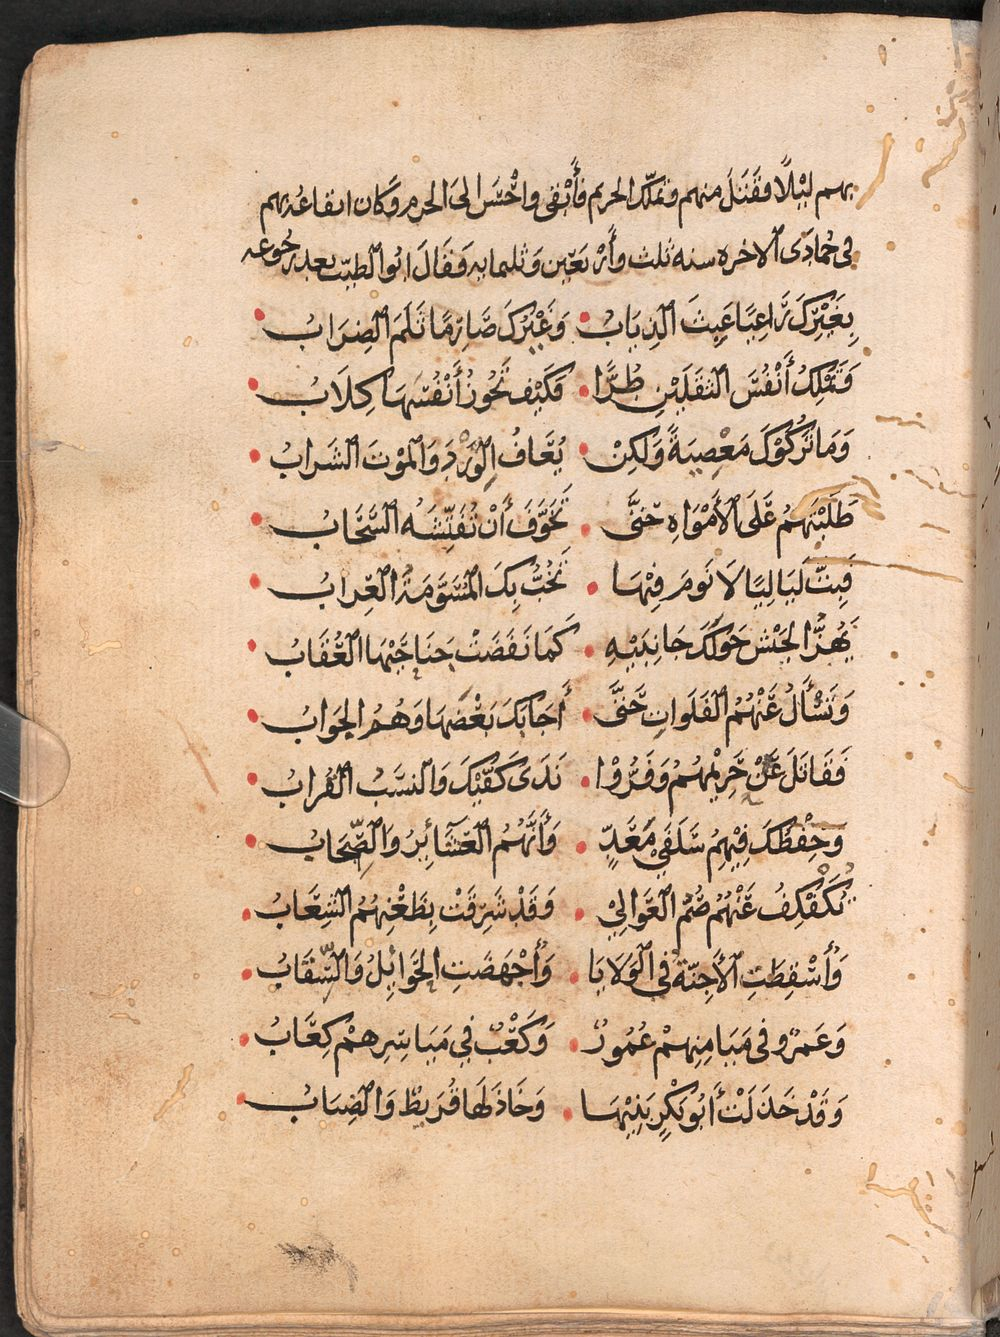 بهم ليْلًا فقَتَلَ منهم وتملّك الحريم فأَبْقى واحْتسَ الى الحرم وَكان ايقاعه بهم
فى جُمادَى الاخره سنه ثلث وأرْبَعِين وَثلمايه فَقَالَ ابُو الطيّب بعد رجُوعه
بِغَيْرِكَ رَاعِيًا عَبِثَ الذِيَابُ وَغَيْرَكَ صَارِمًا ثَلَمَ الضِرَابُ
وَتَمْلِكُ أَنْفُسَ الثقَلَيْنِ طُرًّا فَكَيْفَ تَحُوزُ أَنْفُسَهَا كِلَابُ
وَمَا تَرَكُوْكَ مَعْصِيَةً وَلَكِنْ يُعَافُ الوِرْدُ وَالمَوْتُ الشَرَابُ
طَلَبْتَهُمُ عَلَى الأَمْوَاهِ حَتىَّ تَخَوَّفَ أَنْ تُفَتِّشَهُ السَّحَابُ
فَبِتَّ لَيَالِيًا لَا نَومَ فِيْهَا تَخُبُّ بِكَ المُسَوَّمَةُ العِرابُ
يَهُزُّ الجَيْشُ حَوْلَكَ جَانِبَيْهِ كَمَا نَفَضَتْ جَنَاحَيْهَا العُقَابُ
وَتَسْأَلُ عَنْهُمُ الفَلَواتِ حَتىَّ أَجَابَكَ بَعْضُهَا وَهُمُ الجَوابُ
فَقَاتَلَ عَنْ حَرِيْمِهُمُ وَفَرُّوْا نَدَى كَفَّيْكَ وَالنسَبُ القُرابُ
وَحِفْظُكَ فِيْهِمُ سَلَفَيْ مَعَدٍّ وَأَنَّهُمُ العَشَائِرُ وَالصِّحَابُ
تُكَفْكِفُ عَنْهُمُ صُمَّ العَوَالِيْ وَقَدْ شَرِقَتْ بِظُعْنِهُمُ الشِعَابُ
وَأُسْقِطَتِ الأَجِنّةُ فى الوَلَايَا وَأُجْهِضَتِ الحَوَائِلُ وَالسِّقَابُ
وَعَمْرٌو فى مَيَامِنِهِمْ عُمُورٌ وَكَعْبٌ فِي مَيَاسِرِهِمْ كِعَابُ
وَقَدْ خَذَلَتْ أَبُو بَكْرٍ بَنِيْهَا وَخَاذَلَهَا قُرَيْظٌ وَالضِبَابُ